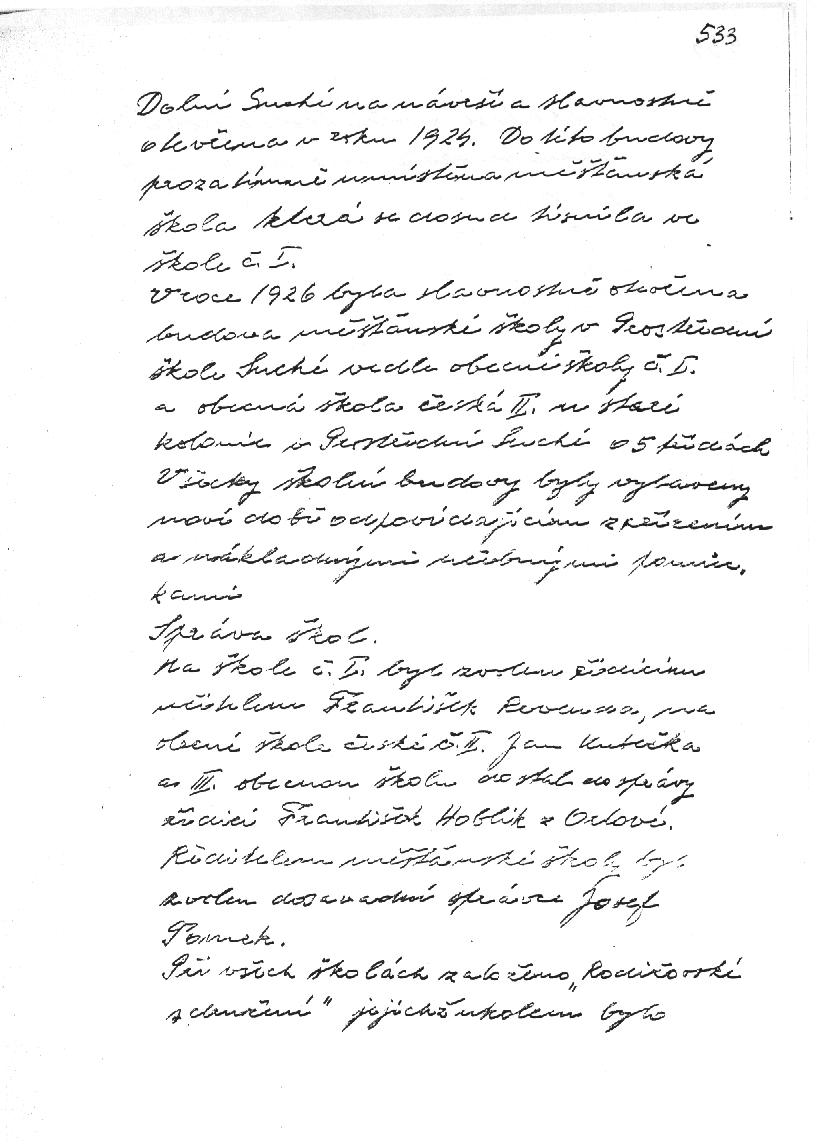 533
Dolní Suché na návsi a slavnostně
otevřena v roku 1924. Do této budovy
prozatímně umístěna měšťánská
škola která se dosud tísnila ve
škole č. I.
V roce 1926 byla slavnostně otevřena
budova měšťánské školy v Prostřední
škole Suché vedle obecní školy č. I.
a obecná škola česká II. u staré
kolonie v Prostřední Suché o 5 třídách
Všecky školní budovy byly vybaveny
nové době odpovídajícím zařízením
a nákladnými učebnými pomůc.
kami
Správa škol.
Na škole č. I. byl zvolen řídícím
učitelem František, na
obecné škole české č. II. Jan Kutečka
a III. obecnou školu dostal do správy
řídící František Hoblík z Orlové.
Ředitelem měšťánské školy byl
zvolen dosavadní správce Josef
Pomek.
Při všech školách založeno „Rodičovské
sdružení" jejichž úkolem bylo